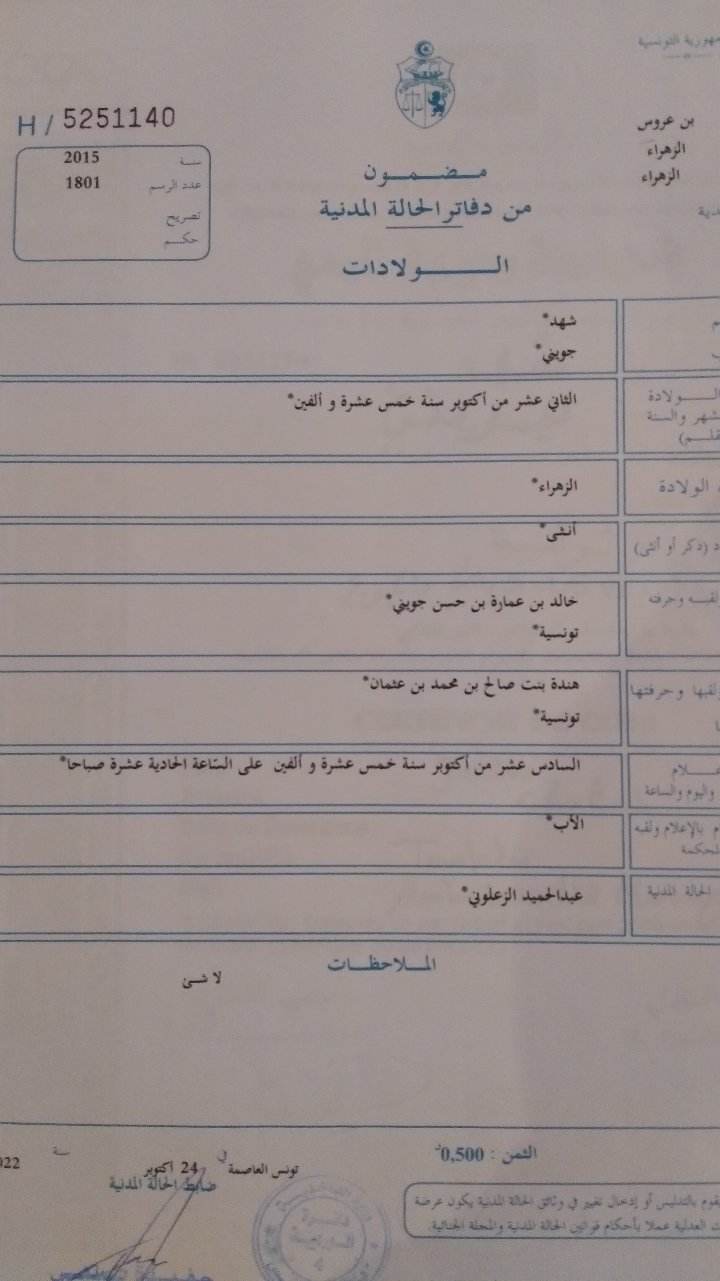 التونسية
بن عروس
الزهراء
الزهراء
H / 5251140
سنة 2015
عدد الرسم 1801
تصريح
حكم
مضمون
من دفاتر الحالة المدنية
الولادات
شهد*
جويني*
الولادة
الثاني عشر من أكتوبر سنة خمس عشرة و ألفين*
والسنة
الولادة
الزهراء*
(ذكر أو أنثى)
أنثى*
وحرفته
خالد بن عمارة بن حسن جويني*
تونسية*
وحرفتها
هندة بنت صالح بن محمد بن عثمان*
تونسية*
السادس عشر من أكتوبر سنة خمس عشرة و ألفين على السّاعة الحادية عشرة صباحا*
واليوم والساعة
بالإعلام ولقبه
الأب*
الحالة المدنية
عبدالحميد الزعلوني*
الملاحظات
لا شئ
الثمن : 0,500د
تونس العاصمة في 24 أكتوبر سنة
ضابط الحالة المدنية
بالتدليس أو إدخال تغيير في وثائق الحالة المدنية يكون عرضة
العدلية عملا بأحكام قوانين الحالة المدنية والمجلة الجنائية.